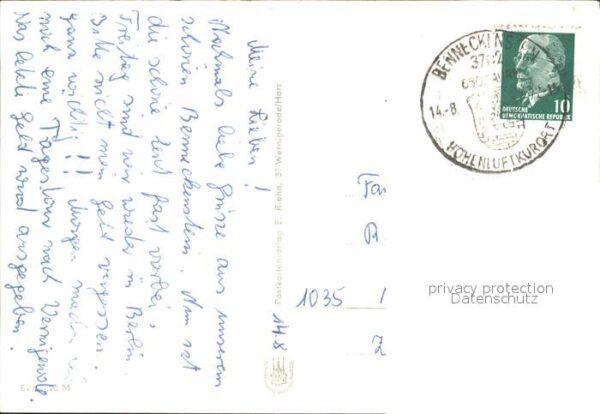 Meine Lieben!
Nochmals liebe Grüsse aus unserem
schönen Benneckenstein. Nun ist
die schöne Zeit fast vorbei,
Freitag sind wir wieder in Berlin.
Bitte nicht mein Geld vergessen.
ganz wichtig!! Morgen machen wir
noch eine Tagestour nach Wernigerode.
Das letzte Geld wird ausgegeben.
14.8
Postkartenverlag E. Riehn, 37 Wernigerode/Harz
BENNECKENSTEIN
14.-8.
HÖHENLUFTKURORT
DEUTSCHE
DEMOKRATISCHE REPUBLIK
10
1035
privacy protection
Datenschutz